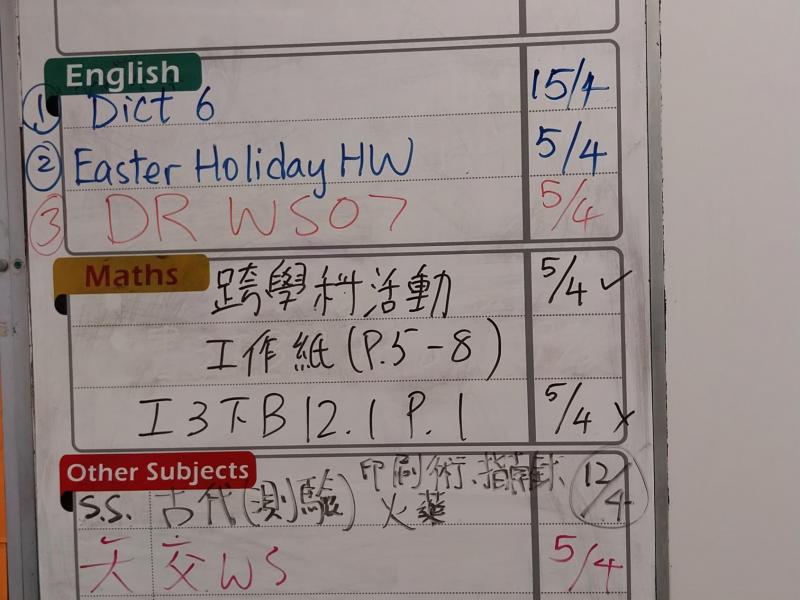 English
① Dict 6 15/4
② Easter Holiday HW 5/4
③ DR WS07 5/4
Maths
跨學科活動 5/4 ✓
工作紙 (P.5-8)
工3下B 12.1 P.1 5/4 ✗
Other Subjects
S.S. 古代(測驗) 印刷術、指南針、火藥 12/4
交WS 5/4